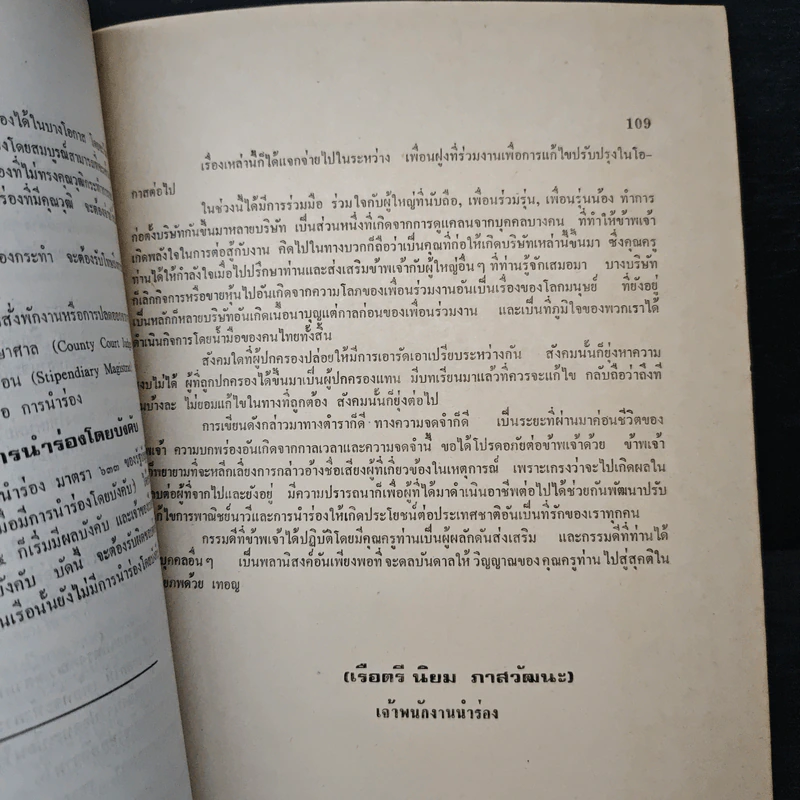 องได้ในบางโอกาส
งโดยสมบูรณ์
องที่ไม่ทรงคุณวุฒิ
ร่องที่มีคุณวุฒิ จะต้อง
องกระทำ จะต้องรับ
รสั่งพักงานหรือการปลดออก
ษาศาล (County Court
อน (Stipendiary
อ การนำร่อง
ารนำร่องโดยบังคับ
นำร่อง มาตรา ๖๓๓
มื่อมีการนำร่องโดยบังคับ)
๕ ก็เริ่มมีผลบังคับ และเจ้าของ
บังคับ บัดนี้ จะต้องรับผิด
นเรือนั้นยังไม่มีการนำร่องโดย
109
เรื่องเหล่านี้ก็ได้แจกจ่ายไปในระหว่าง เพื่อนฝูงที่ร่วมงานเพื่อการแก้ไขปรับปรุงในโอ-
กาสต่อไป
ในช่วงนี้ได้มีการร่วมมือ ร่วมใจกับผู้ใหญ่ที่นับถือ, เพื่อนร่วมรุ่น, เพื่อนรุ่นน้อง ทำการ
ก่อตั้งบริษัทกันขึ้นมาหลายบริษัท เป็นส่วนหนึ่งที่เกิดจากการดูแคลนจากบุคคลบางคน ที่ทำให้ข้าพเจ้า
เกิดพลังใจในการต่อสู้กับงาน คิดไปในทางบวกก็ถือว่าเป็นคุณที่ก่อให้เกิดบริษัทเหล่านี้ขึ้นมา ซึ่งคุณครู
ท่านได้ให้กำลังใจเมื่อไปปรึกษาท่านและส่งเสริมข้าพเจ้ากับผู้ใหญ่อื่นๆ ที่ท่านรู้จักเสมอมา บางบริษัท
ก็เลิกกิจการหรือขายหุ้นไปอันเกิดจากความโลภของเพื่อนร่วมงานอันเป็นเรื่องของโลกมนุษย์ ที่ยังอยู่
เป็นหลักก็หลายบริษัทอันเกิดเนื้อนาบุญแต่กาลก่อนของเพื่อนร่วมงาน และเป็นที่ภูมิใจของพวกเราได้
ดำเนินกิจการโดยน้ำมือของคนไทยทั้งสิ้น
สังคมใดที่ผู้ปกครองปล่อยให้มีการเอารัดเอาเปรียบระหว่างกัน สังคมนั้นก็ยุ่งหาความ
งบไม่ได้ ผู้ที่ถูกปกครองได้ขึ้นมาเป็นผู้ปกครองแทน มีบทเรียนมาแล้วที่ควรจะแก้ไข กลับถือว่าถึงที
นบ้างละ ไม่ยอมแก้ไขในทางที่ถูกต้อง สังคมนั้นก็ยุ่งต่อไป
การเขียนดังกล่าวมาทางตำราก็ดี ทางความจดจำก็ดี เป็นระยะที่ผ่านมาค่อนชีวิตของ
พเจ้า ความบกพร่องอันเกิดจากกาลเวลาและความจดจำนี้ ขอได้โปรดอภัยต่อข้าพเจ้าด้วย ข้าพเจ้า
ก็พยายามที่จะหลีกเลี่ยงการกล่าวอ้างชื่อเสียงผู้ที่เกี่ยวข้องในเหตุการณ์ เพราะเกรงว่าจะไปเกิดผลใน
บต่อผู้ที่จากไปและยังอยู่ มีความปรารถนาก็เพื่อผู้ที่ได้มาดำเนินอาชีพต่อไปได้ช่วยกันพัฒนาปรับ
แก้ไขการพาณิชย์นาวีและการนำร่องให้เกิดประโยชน์ต่อประเทศชาติอันเป็นที่รักของเราทุกคน
กรรมดีที่ข้าพเจ้าได้ปฏิบัติโดยมีคุณครูท่านเป็นผู้ผลักดันส่งเสริม และกรรมดีที่ท่านได้
บุคคลอื่นๆ เป็นพลานิสงค์อันเพียงพอที่ จะดลบันดาลให้ วิญญาณของ คุณครูท่าน ไปสู่สุคติใน
ยภพด้วย เทอญ
(เรือตรี นิยม ภาสวัฒนะ)
เจ้าพนักงานนำร่อง